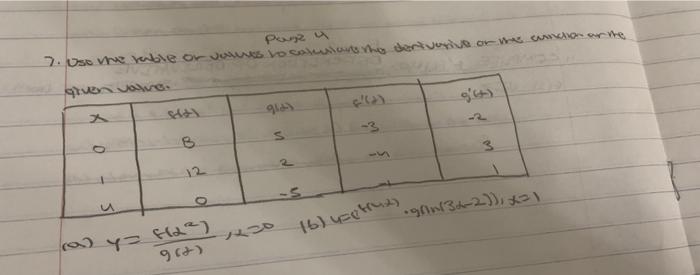 Page 4
7. Use the table of values to calculate the derivative of the function at the
given value.
x f(x) g(x) f'(x) g'(x)
0 8 5 -3 -2
1 12 2 -4 3
4 0 -5 1
(a) y = f(x²)/g(x), x=0 (b) y=e^f(4x) · g(ln(3x-2)), x=1